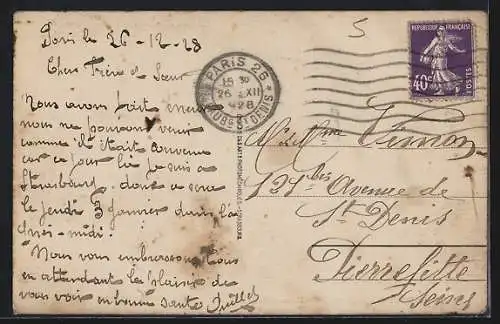 Paris le 26-12-28
Cher Frère et Sœur
Nous avons fait erreur
nous ne pouvons venir
comme il était convenu
car ce jour là je suis a
Strasbourg. donc ce sera
le jeudi 3 Janvier dans l'a
près-midi.
Nous vous embrassons tous
en attendant le plaisir de
vous voir en bonne santé
5
PARIS 25
15 30
26 XII
28
ST DENIS
REPUBLIQUE FRANÇAISE
40c
POSTES
M et Mme Vernon
121 bis Avenue de
St Denis
Pierrefitte
Seine